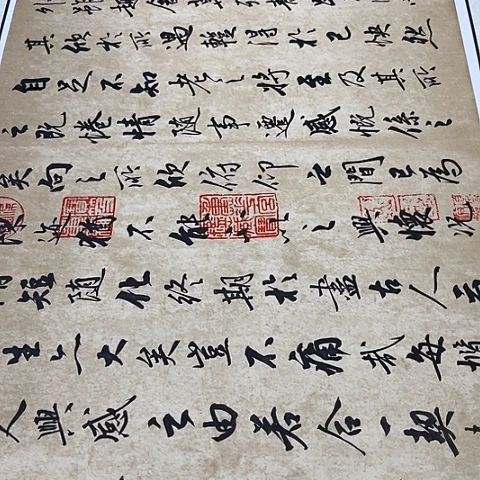 趣舍萬殊
其欣於所遇蹔得於己快然
自足不知老之將至及其所
之既惓情隨事遷感慨係之
矣向之所欣俛仰之間已為
陳迹猶不能不以之興懷況
短隨化終期於盡古人云
生亦大矣豈不痛哉每攬
人興感之由若合一契